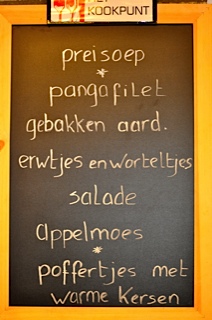 KOOKPUNT
preisoep
*
pangafilet
gebakken aard.
erwtjes en worteltjes
salade
appelmoes
*
poffertjes met
warme kersen